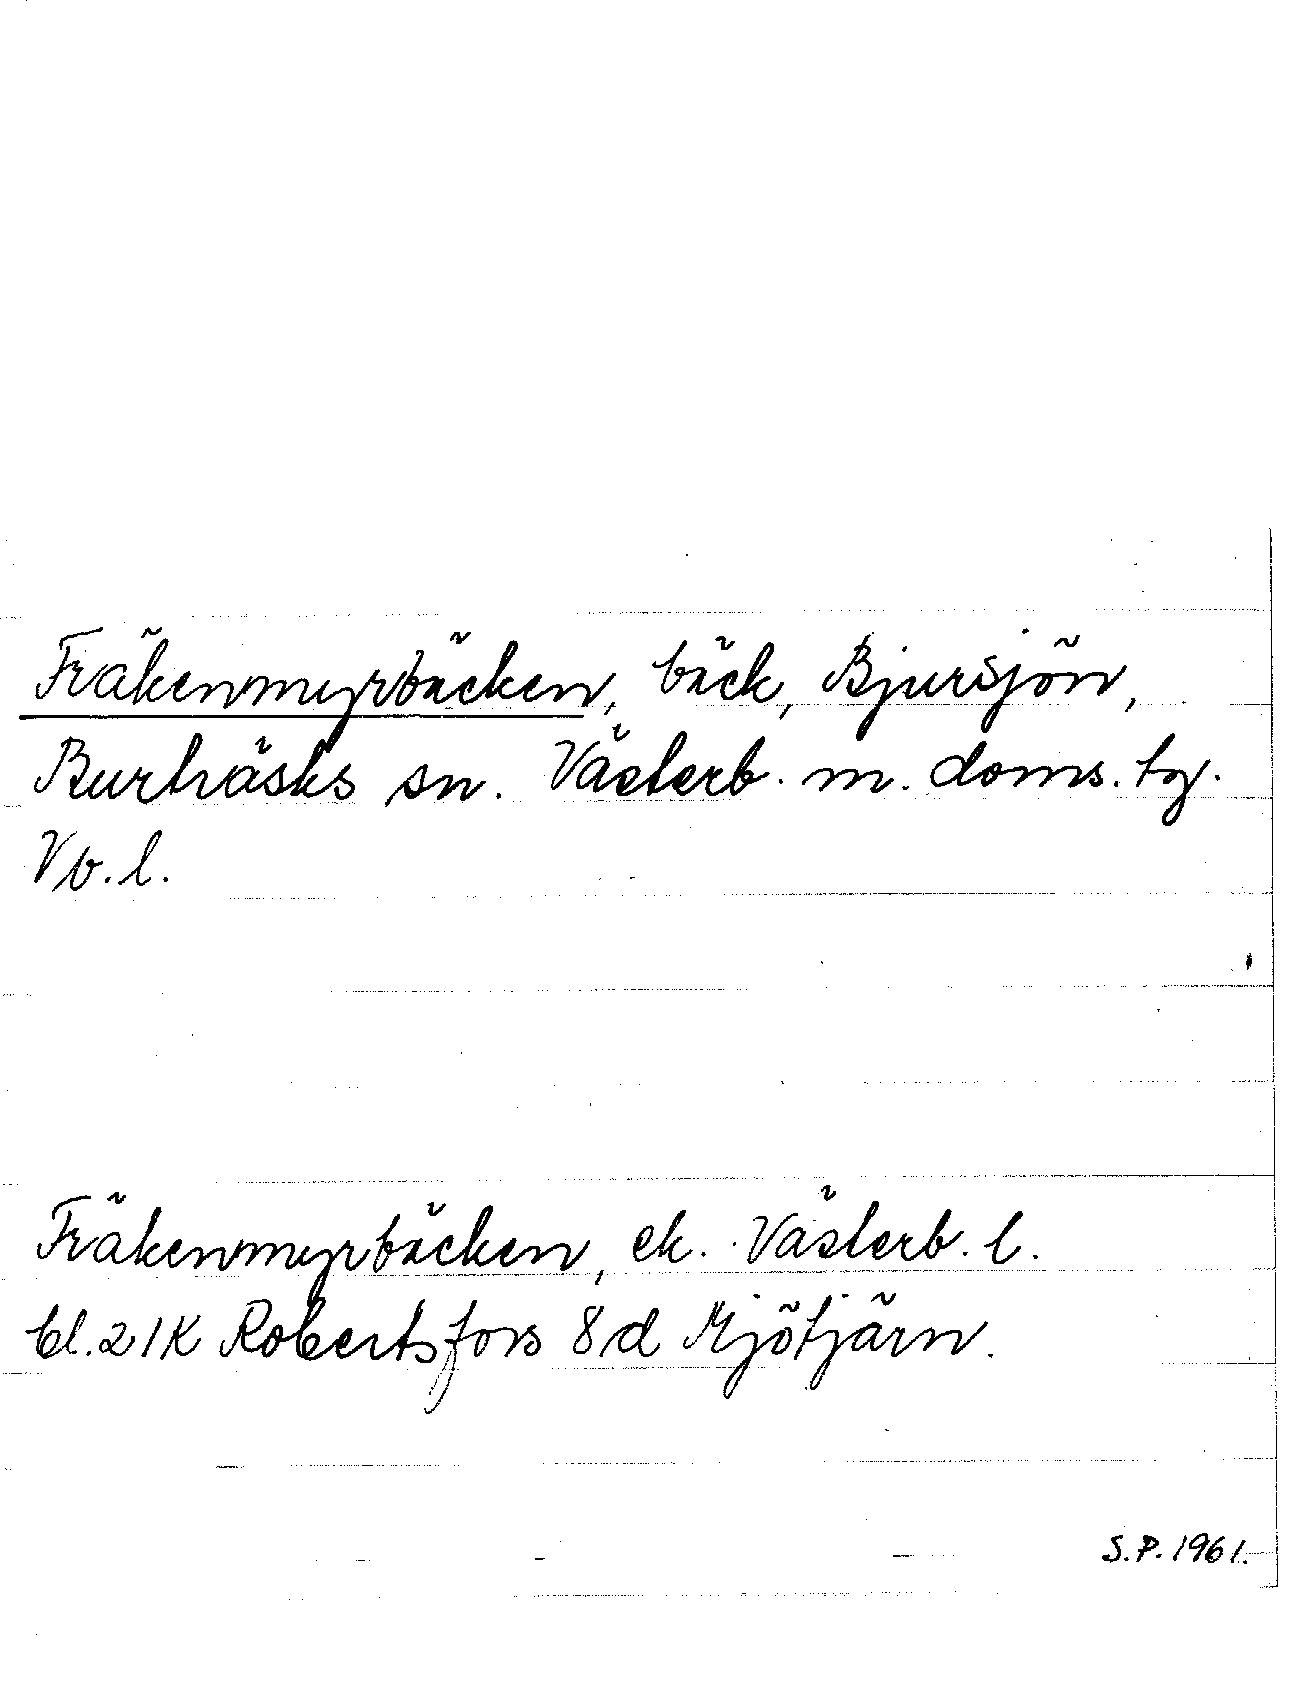 Fräkenmyrbäcken, bäck, Bjursjön,
Burträsks sn. Västerb. m. doms. tg.
Vb. l.
Fräkenmyrbäcken, ek. Västerb. l.
bl. 21K Robertsfors 8d Mjötjärn.
S.P. 1961.